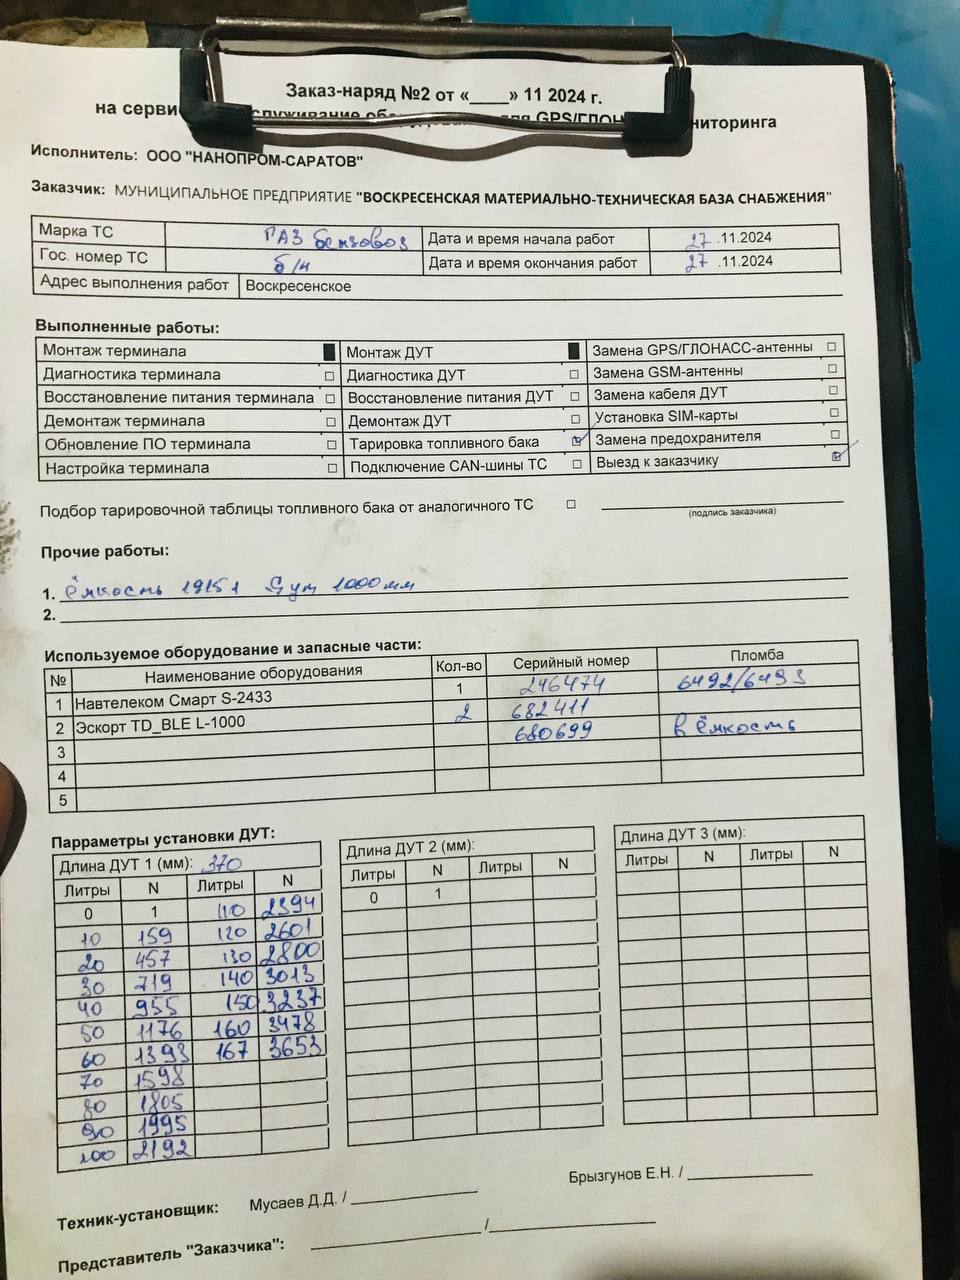 Заказ-наряд №2 от «____» 11 2024 г.
на серви служивание для GPS/ГЛОН ниторинга
Исполнитель: ООО "НАНОПРОМ-САРАТОВ"
Заказчик: МУНИЦИПАЛЬНОЕ ПРЕДПРИЯТИЕ "ВОСКРЕСЕНСКАЯ МАТЕРИАЛЬНО-ТЕХНИЧЕСКАЯ БАЗА СНАБЖЕНИЯ"
Марка ТС ГАЗ бензовоз Дата и время начала работ 27 .11.2024
Гос. номер ТС б/н Дата и время окончания работ 27 .11.2024
Адрес выполнения работ Воскресенское
Выполненные работы:
Монтаж терминала Монтаж ДУТ Замена GPS/ГЛОНАСС-антенны
Диагностика терминала Диагностика ДУТ Замена GSM-антенны
Восстановление питания терминала Восстановление питания ДУТ Замена кабеля ДУТ
Демонтаж терминала Демонтаж ДУТ Установка SIM-карты
Обновление ПО терминала Тарировка топливного бака Замена предохранителя
Настройка терминала Подключение CAN-шины ТС Выезд к заказчику
Подбор тарировочной таблицы топливного бака от аналогичного ТС
(подпись заказчика)
Прочие работы:
1. ёмкость 1915 л Дут 1000 мм
2.
Используемое оборудование и запасные части:
№ Наименование оборудования Кол-во Серийный номер Пломба
1 Навтелеком Смарт S-2433 1 246474 6492/6493
2 Эскорт TD_BLE L-1000 2 682411
3 680699 в ёмкость
4
5
Парраметры установки ДУТ:
Длина ДУТ 1 (мм): 370 Длина ДУТ 2 (мм): Длина ДУТ 3 (мм):
Литры N Литры N Литры N Литры N Литры N Литры N
0 1 110 2394 0 1
10 159 120 2601
20 457 130 2800
30 719 140 3013
40 955 150 3237
50 1176 160 3478
60 1393 167 3653
70 1598
80 1805
90 1995
100 2192
Техник-установщик: Мусаев Д.Д. / Брызгунов Е.Н. /
Представитель "Заказчика": /